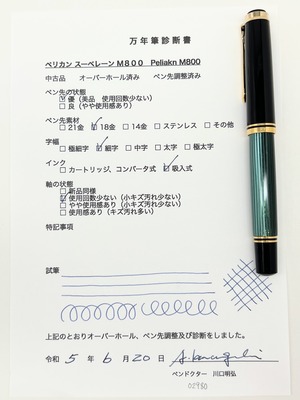 万年筆診断書
ペリカン スーベレーンM800 Peliakn M800
中古品 オーバーホール済み ペン先調整済み
ペン先の状態
☑優（美品 使用回数少ない）
□良（やや使用感あり）
ペン先素材
□21金 ☑18金 □14金 □ステンレス □その他
字幅
□極細字 ☑細字 □中字 □太字 □極太字
インク
□カートリッジ、コンバータ式 ☑吸入式
軸の状態
□新品同様
☑使用回数少ない（小キズ汚れ少ない）
□やや使用感あり（小キズ汚れ少ない）
□使用感あり（キズ汚れ多い）
特記事項
試筆
上記のとおりオーバーホール、ペン先調整及び診断をしました。
令和 5 年 6 月 20 日
ペンドクター 川口明弘
02980